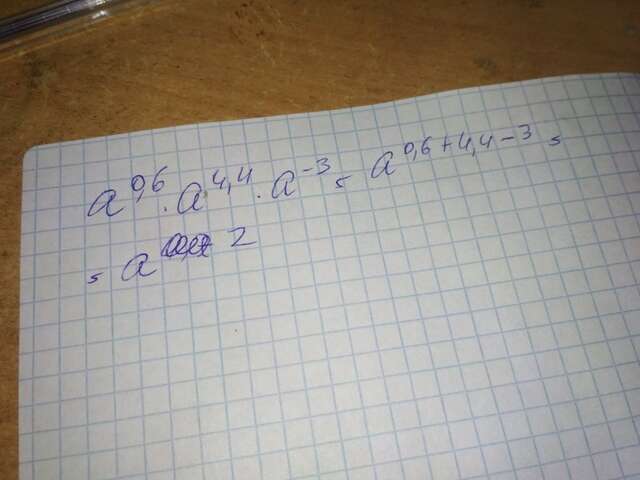 a^0,6 · a^4,4 · a^-3 = a^0,6+4,4-3 =
= a^2